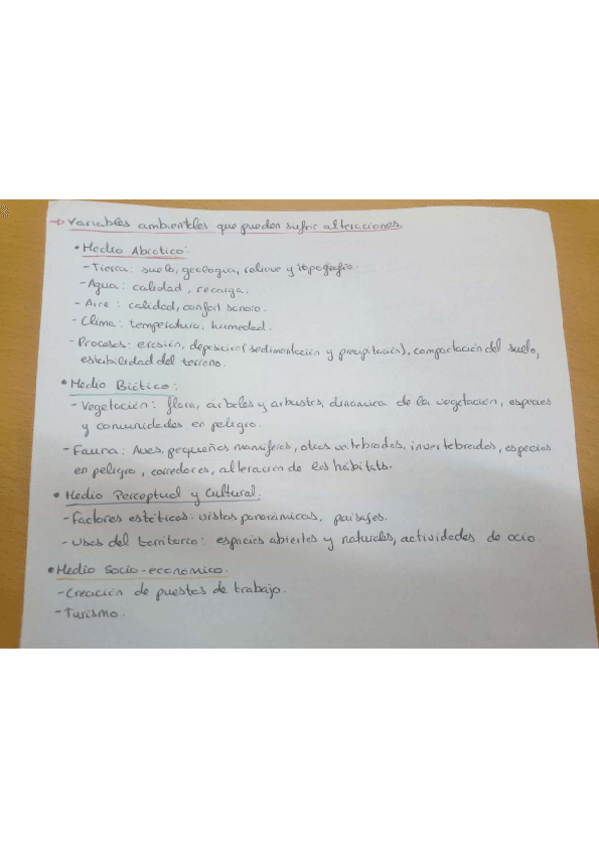 → Variables ambientales que pueden sufrir alteraciones.
• Medio Abiótico:
- Tierra: suelo, geología, relieve y topografía.
- Agua: calidad, recarga.
- Aire: calidad, confort sonoro.
- Clima: temperatura, humedad.
- Procesos: erosión, deposición (sedimentación y precipitación), compactación del suelo,
estabilidad del terreno.
• Medio Biótico:
- Vegetación: flora, árboles y arbustos, dinámica de la vegetación, especies
y comunidades en peligro.
- Fauna: Aves, pequeños mamíferos, otros vertebrados, invertebrados, especies
en peligro, corredores, alteración de los hábitats.
• Medio Perceptual y Cultural:
- Factores estéticos: vistas panorámicas, paisajes.
- Usos del territorio: espacios abiertos y naturales, actividades de ocio.
• Medio Socio-económico.
- Creación de puestos de trabajo.
- Turismo.